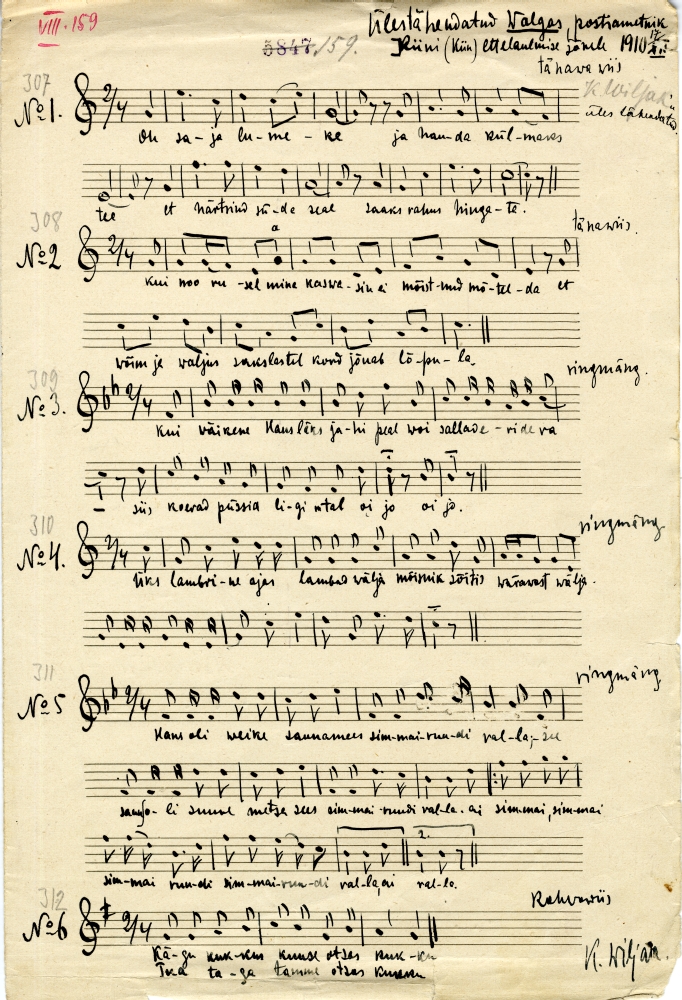 VIII. 159
Ülestähendatud Valgas, postiametnik
5847/159. Kiini (Kün) etelaulmise järele 1910 17/XII
307 tänawa wiis
K. Wiljak
№ 1. üles tähendatud.
Oh sa-ja lu-me-ke ja han-da kül-maks
tee et närtsind sü-da seal saaks rahus hinga-ta.
308 tänawiis.
№ 2
a
kui noo ru-sel mine kaswa-sin ei mõist-nud mõ-tel-da et
wõim ja waljus sakslastel kord jõuab lõ-pu-la.
309 ringmäng.
№ 3.
kui wäikene Hans läks ja-hi peal woi sallade-ride ra
siis koerad püssid li-gi wtal oi jo oi jo.
310 ringmäng
№ 4.
Üks lambri-ne ajas lambad wälja mõisnik sõitis wärawast wälja.
311 ringmäng
№ 5
Hans oli weike saunamees sim-mai-run-di val-la,-see
saun o-li suure metsa sees sim-mai rundi val-la. ai simmai, simmai
2.
sim-mai run-di sim-mai-run-di val-la, ai val-la.
312 Rahwawiis
№ 6
Kä-gu kuk-kus kuuse otsas kuk-ku
ta-ga tamme otsas
K. Wiljak.